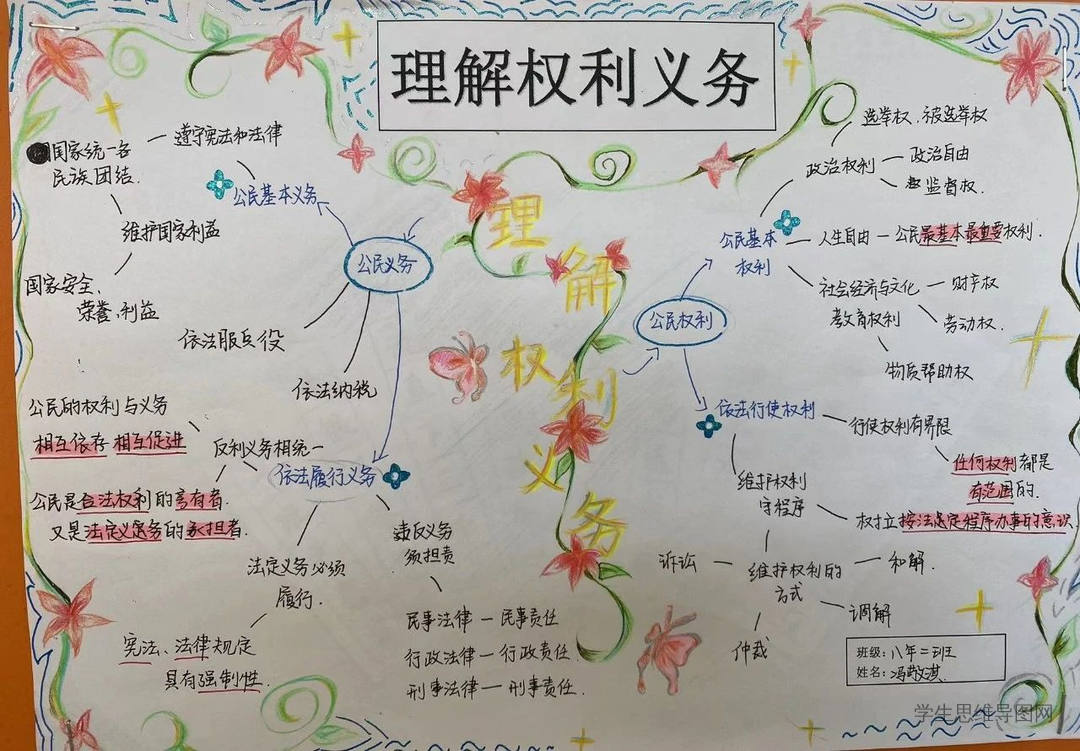 理解权利义务
理
解
权
利
义
务
公民义务
公民基本义务
遵守宪法和法律
维护国家利益
国家统一各
民族团结.
国家安全、
荣誉、利益
依法服兵役
依法纳税
依法履行义务
反利义务相统一
公民的权利与义务
相互依存 相互促进
公民是合法权利的享有者.
又是法定义务的承担者.
法定义务必须
履行.
宪法、法律规定
具有强制性.
违反义务
须担责
民事法律—民事责任
行政法律—行政责任.
刑事法律—刑事责任.
公民权利
公民基本
权利
政治权利
选举权、被选举权
政治自由
监督权.
人生自由—公民最基本最重要权利.
社会经济与文化
教育权利
财产权
劳动权.
物质帮助权
依法行使权利
行使权利有界限
任何权利都是
有范围的.
维护权利
守程序
权扗按法定程序办事的意识.
维护权利的
方式
诉讼
和解.
调解
仲裁
班级:八年二班
姓名:冯敬淇.
学生思维导图网